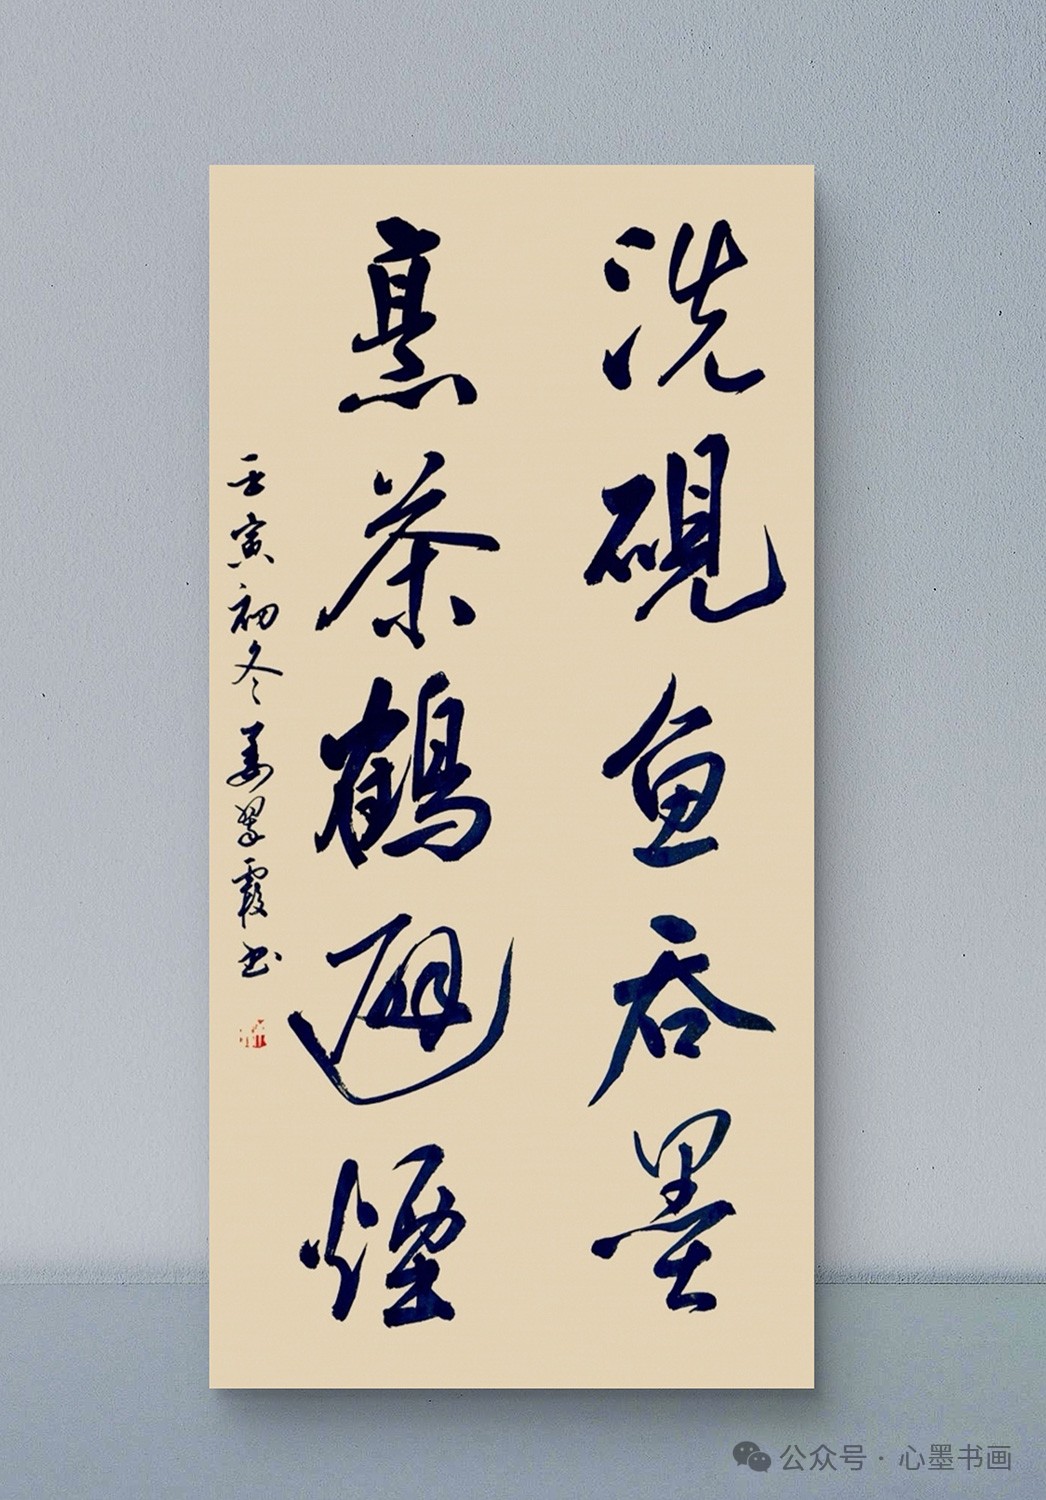 洗砚鱼吞墨
烹茶鹤避烟
壬寅初冬姜翠霞书
公众号·心墨书画